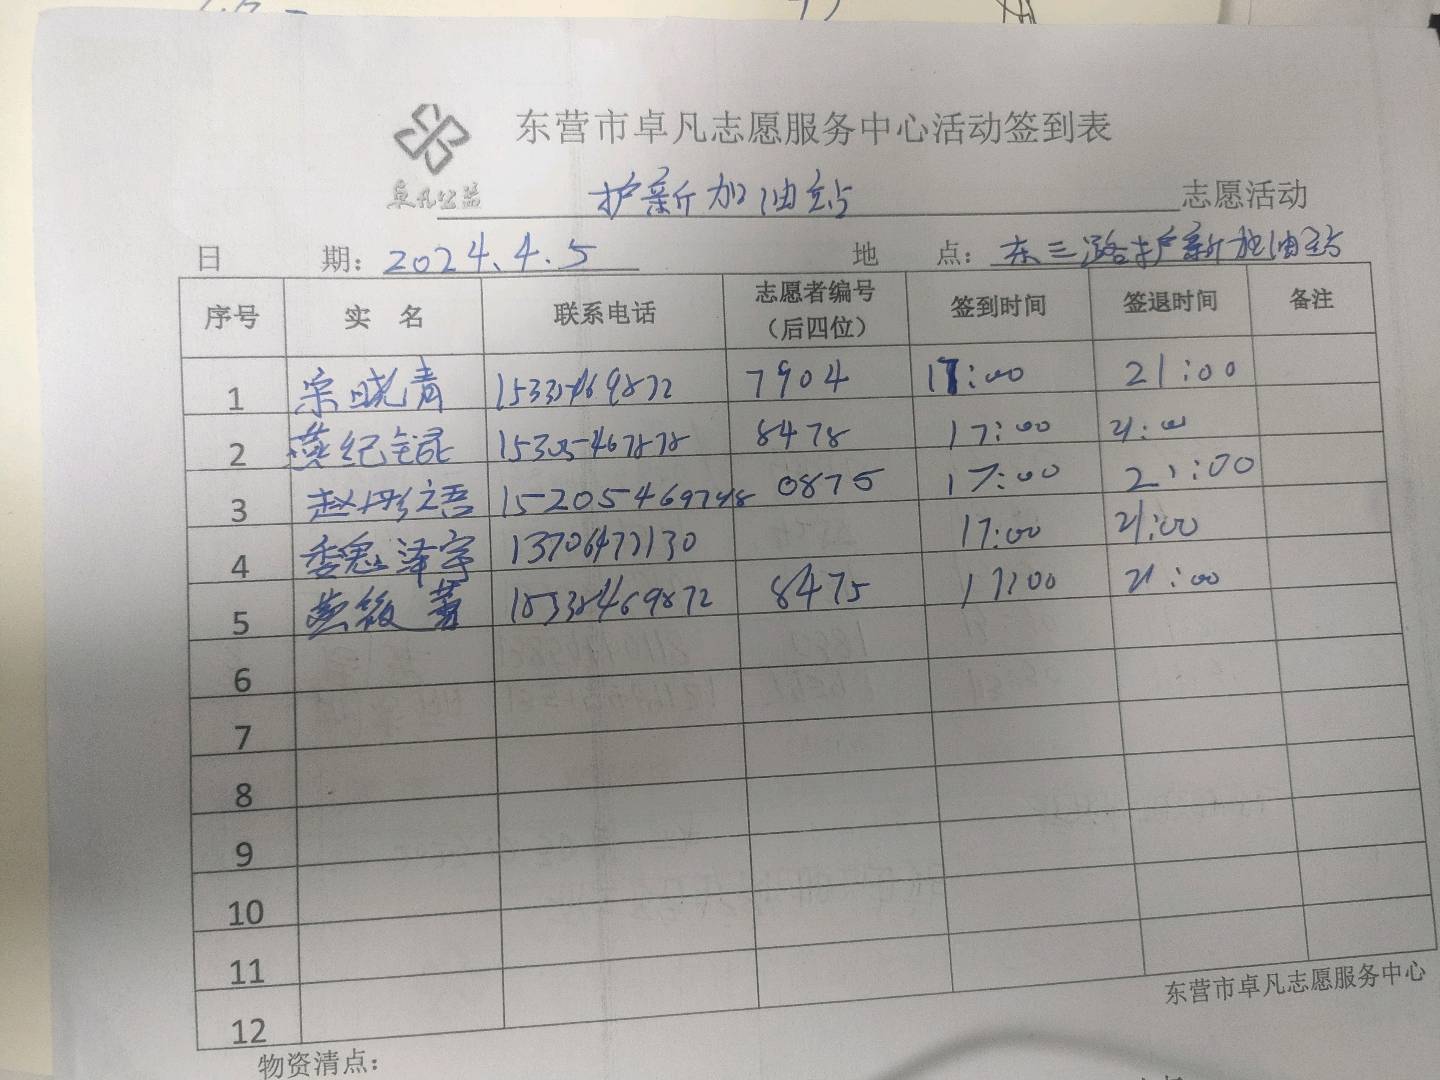 东营市卓凡志愿服务中心活动签到表
卓凡公益
护新加油站 志愿活动
日 期: 2024.4.5 地 点: 东三路护新加油站
序号 实 名 联系电话 志愿者编号（后四位） 签到时间 签退时间 备注
1 宗晓青 15335469872 7904 17:00 21:00
2 燕纪 15305467878 8478 17:00 21:00
3 赵彤语 0875 17:00 21:00
4 泽宇 13706472130 17:00 21:00
5 15335469872 8475 17:00 21:00
6
7
8
9
10
11
12
东营市卓凡志愿服务中心
物资清点: